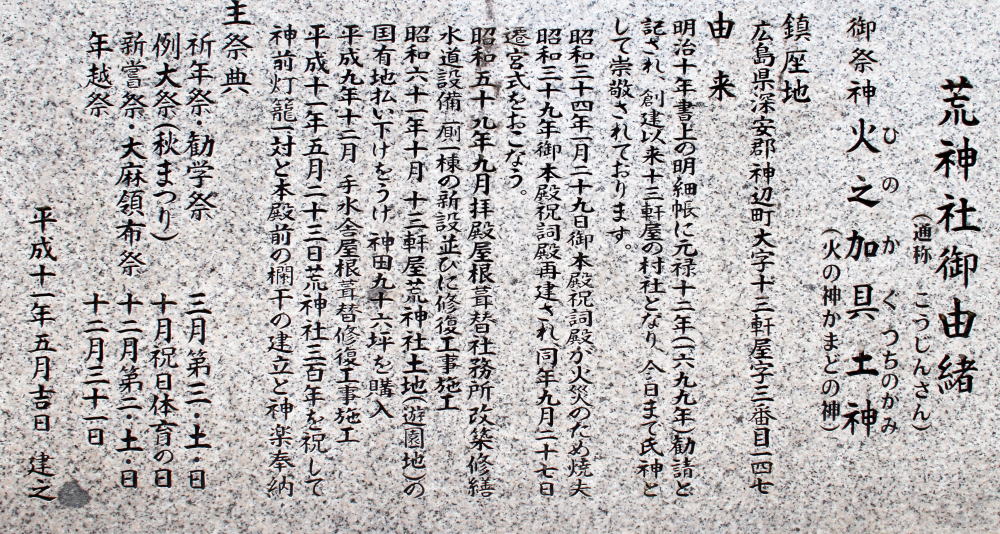 荒神社御由緒
(通称 こうじんさん)
御祭神 火之加具土神
ひのかぐつちのかみ
(火の神かまどの神)
鎮座地
広島県深安郡神辺町大字十三軒屋字三番目一四七
由来
明治十年書上の明細帳に元禄十二年(一六九九年)勧請と
記され、創建以来十三軒屋の村社となり、今日まで氏神と
して崇敬されております。
昭和三十四年一月二十九日御本殿祝詞殿が火災のため焼失
昭和三十九年御本殿祝詞殿再建され、同年九月二十七日
遷宮式をおこなう。
昭和五十九年九月拝殿屋根葺替社務所改築修繕
水道設備一厠一棟の新設並びに修復工事施工
昭和六十一年十月 十三軒屋荒神社土地(遊園地)の
国有地払い下けをうけ 神田九十六坪を購入
平成九年十二月 手水舎屋根葺替修復工事施工
平成十一年五月二十三日荒神社三百年を祝して
神前灯籠一対と本殿前の欄干の建立と神楽奉納
主祭典
祈年祭・勧学祭 三月第三・土・日
例大祭(秋まつり) 十月祝日体育の日
新嘗祭・大麻領布祭 十二月第二・土・日
年越祭 十二月三十一日
平成十一年五月吉日 建之